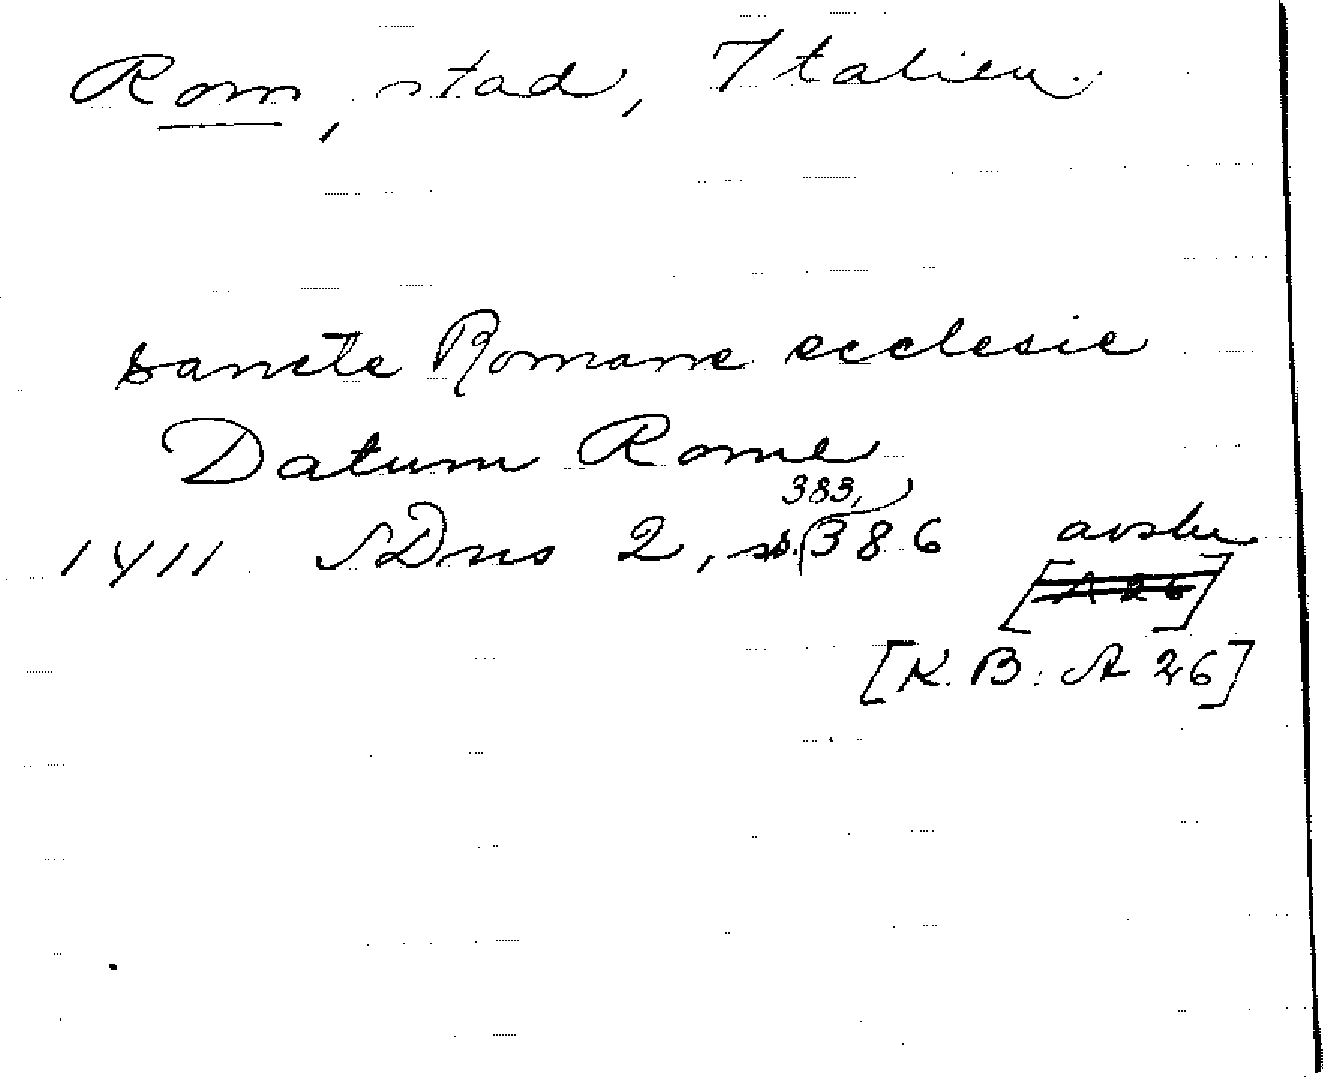 Rom, stad, Italien.
sancte Romane ecclesie
Datum Rome
383,
1411 SDns 2, s. 386 avskr
[A 26]
[K. B. A 26]